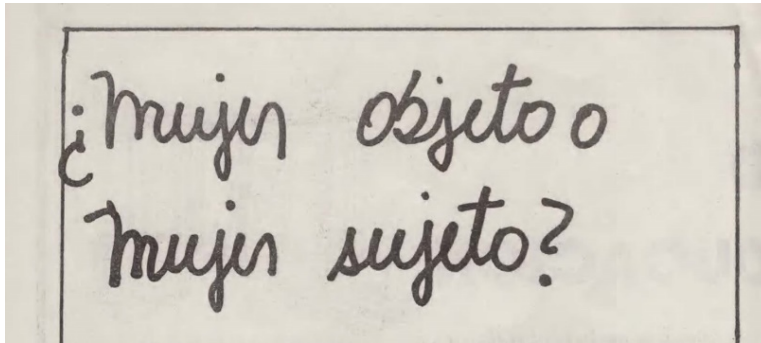 ¿Mujer objeto o
Mujer sujeto?